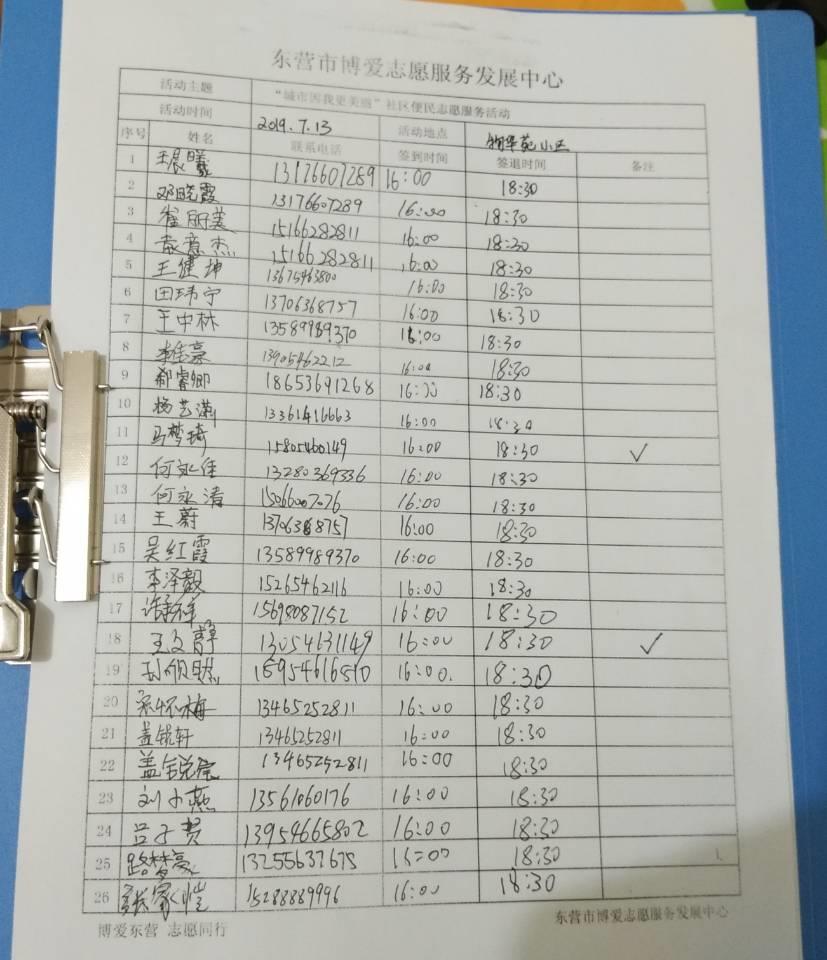 东营市博爱志愿服务发展中心
活动主题 “城市因我更美丽”社区便民志愿服务活动
活动时间 2019.7.13 活动地点 物华苑小区
序号 姓名 联系电话 签到时间 签退时间 备注
1 王晨曦 13176607289 16:00 18:30
2 邓晓霞 13176607289 16:00 18:30
3 崔丽美 15166282811 16:00 18:30
4 袁意杰 15166282811 16:00 18:30
5 王健坤 13675463800 16:00 18:30
6 田玮宁 13706368757 16:00 18:30
7 王中林 13589989370 16:00 18:30
8 13905462212 16:00 18:30
9 郝睿卿 18653691268 16:00 18:30
10 杨艺潇 13361416663 16:00 18:30
11 马梦琦 15805460149 16:00 18:30 ✓
12 何永佳 13280369336 16:00 18:30
13 何永清 15066007076 16:00 18:30
14 王蔚 13706368757 16:00 18:30
15 吴红霞 13589989370 16:00 18:30
16 李泽毅 15265462116 16:00 18:30
17 15698087152 16:00 18:30
18 王文静 13054631149 16:00 18:30 ✓
19 16:00. 18:30
20 13465252811 16:00 18:30
21 盖锐轩 13465252811 16:00 18:30
22 盖锐宸 13465252811 16:00 18:30
23 刘小燕 13561060176 16:00 18:30
24 吕子贤 13954665802 16:00 18:30
25 路梦豪 13255637675 16:00 18:30
26 张家恺 15288889996 16:00 18:30
博爱东营 志愿同行 东营市博爱志愿服务发展中心